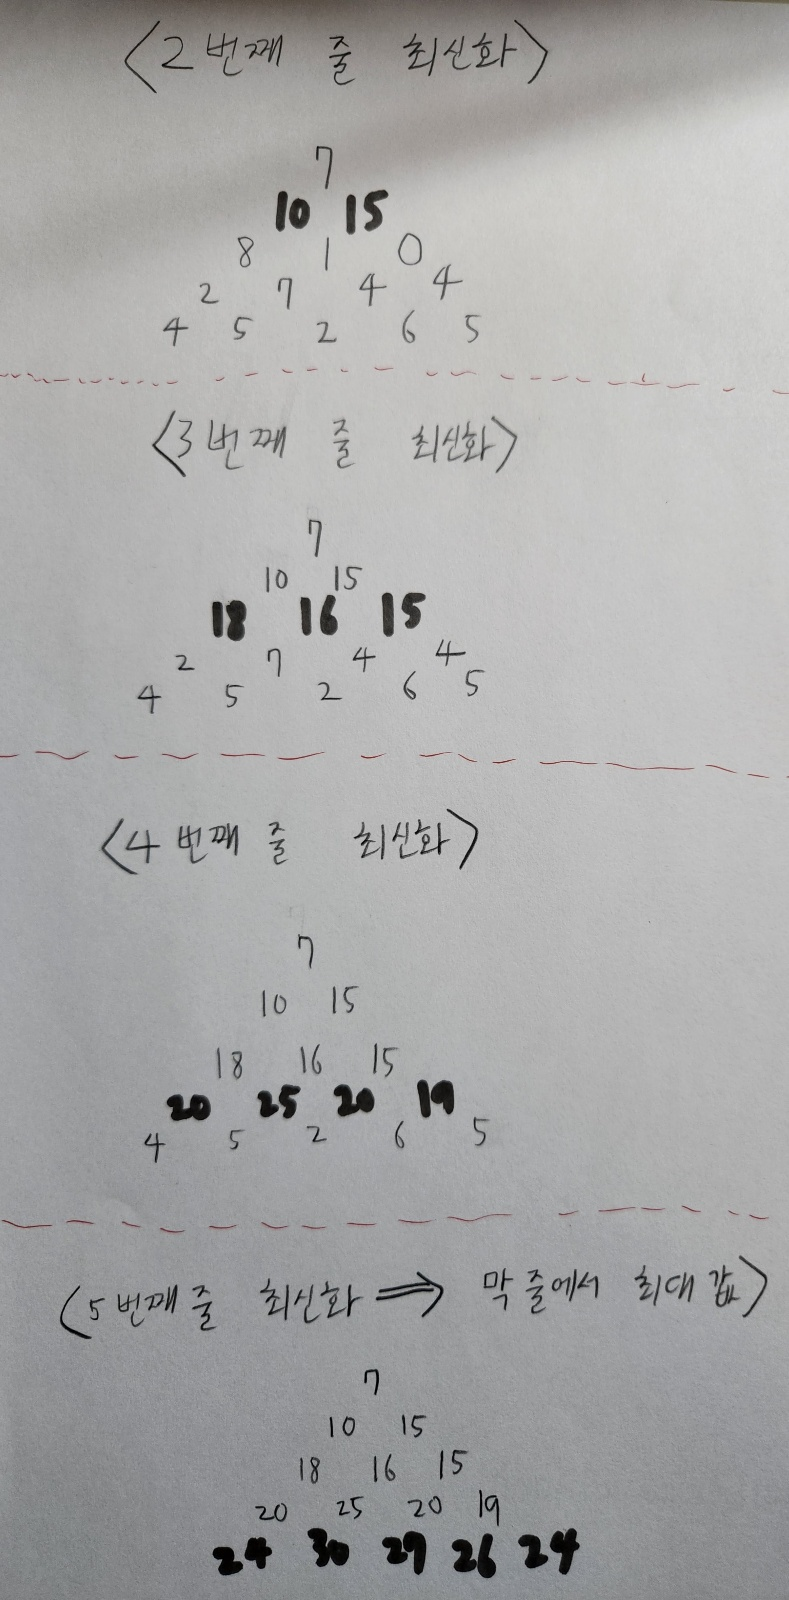 <2번째 줄 최신화>
7
10 15
8 1 0
2 7 4 4
4 5 2 6 5
<3번째 줄 최신화>
7
10 15
18 16 15
2 7 4 4
4 5 2 6 5
<4번째 줄 최신화>
7
10 15
18 16 15
20 25 20 19
4 5 2 6 5
<5번째 줄 최신화 ⇒ 막 줄에서 최대 값>
7
10 15
18 16 15
20 25 20 19
24 30 27 26 24